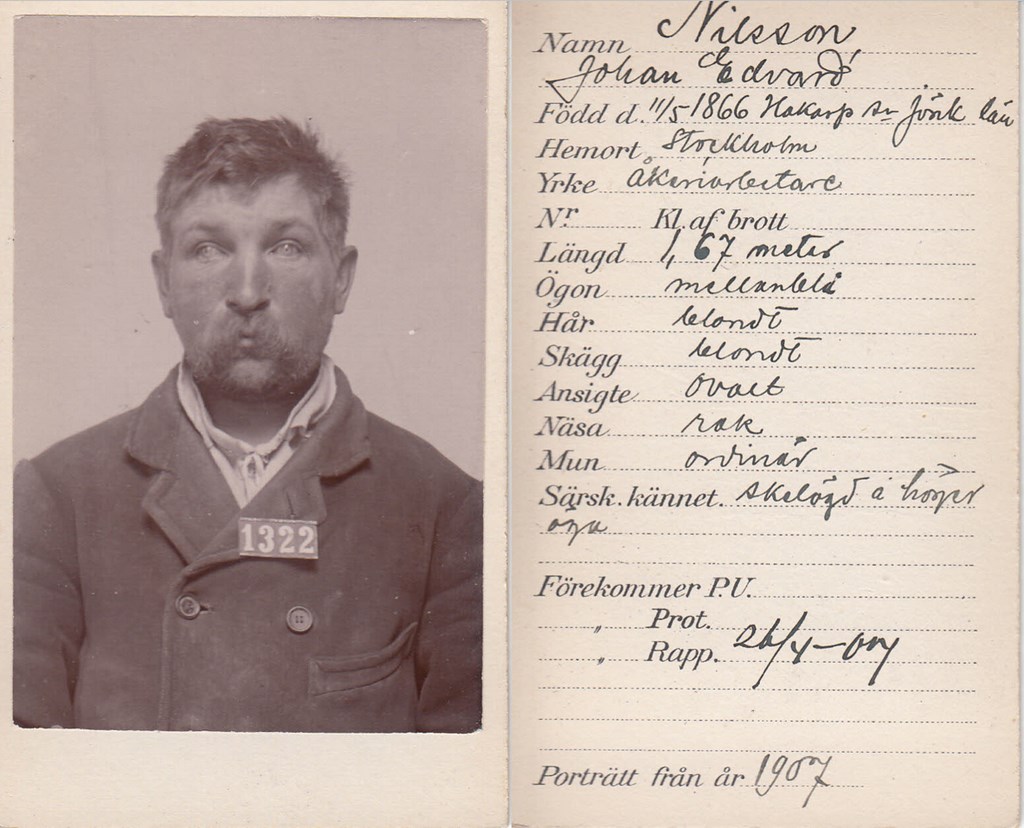 1322
Namn Nilsson
Johan Edvard
Född d. 11/5 1866 Hakarp sn Jönk län
Hemort Stockholm
Yrke Åkeriarbetare
Nr Kl. af brott
Längd 1,67 meter
Ögon mellanblå
Hår blondt
Skägg blondt
Ansigte ovalt
Näsa rak
Mun ordinär
Särsk. kännet. skelögd å höger
öga
Förekommer P.U.
„ Prot.
„ Rapp. 26/4-07
Porträtt från år 1907